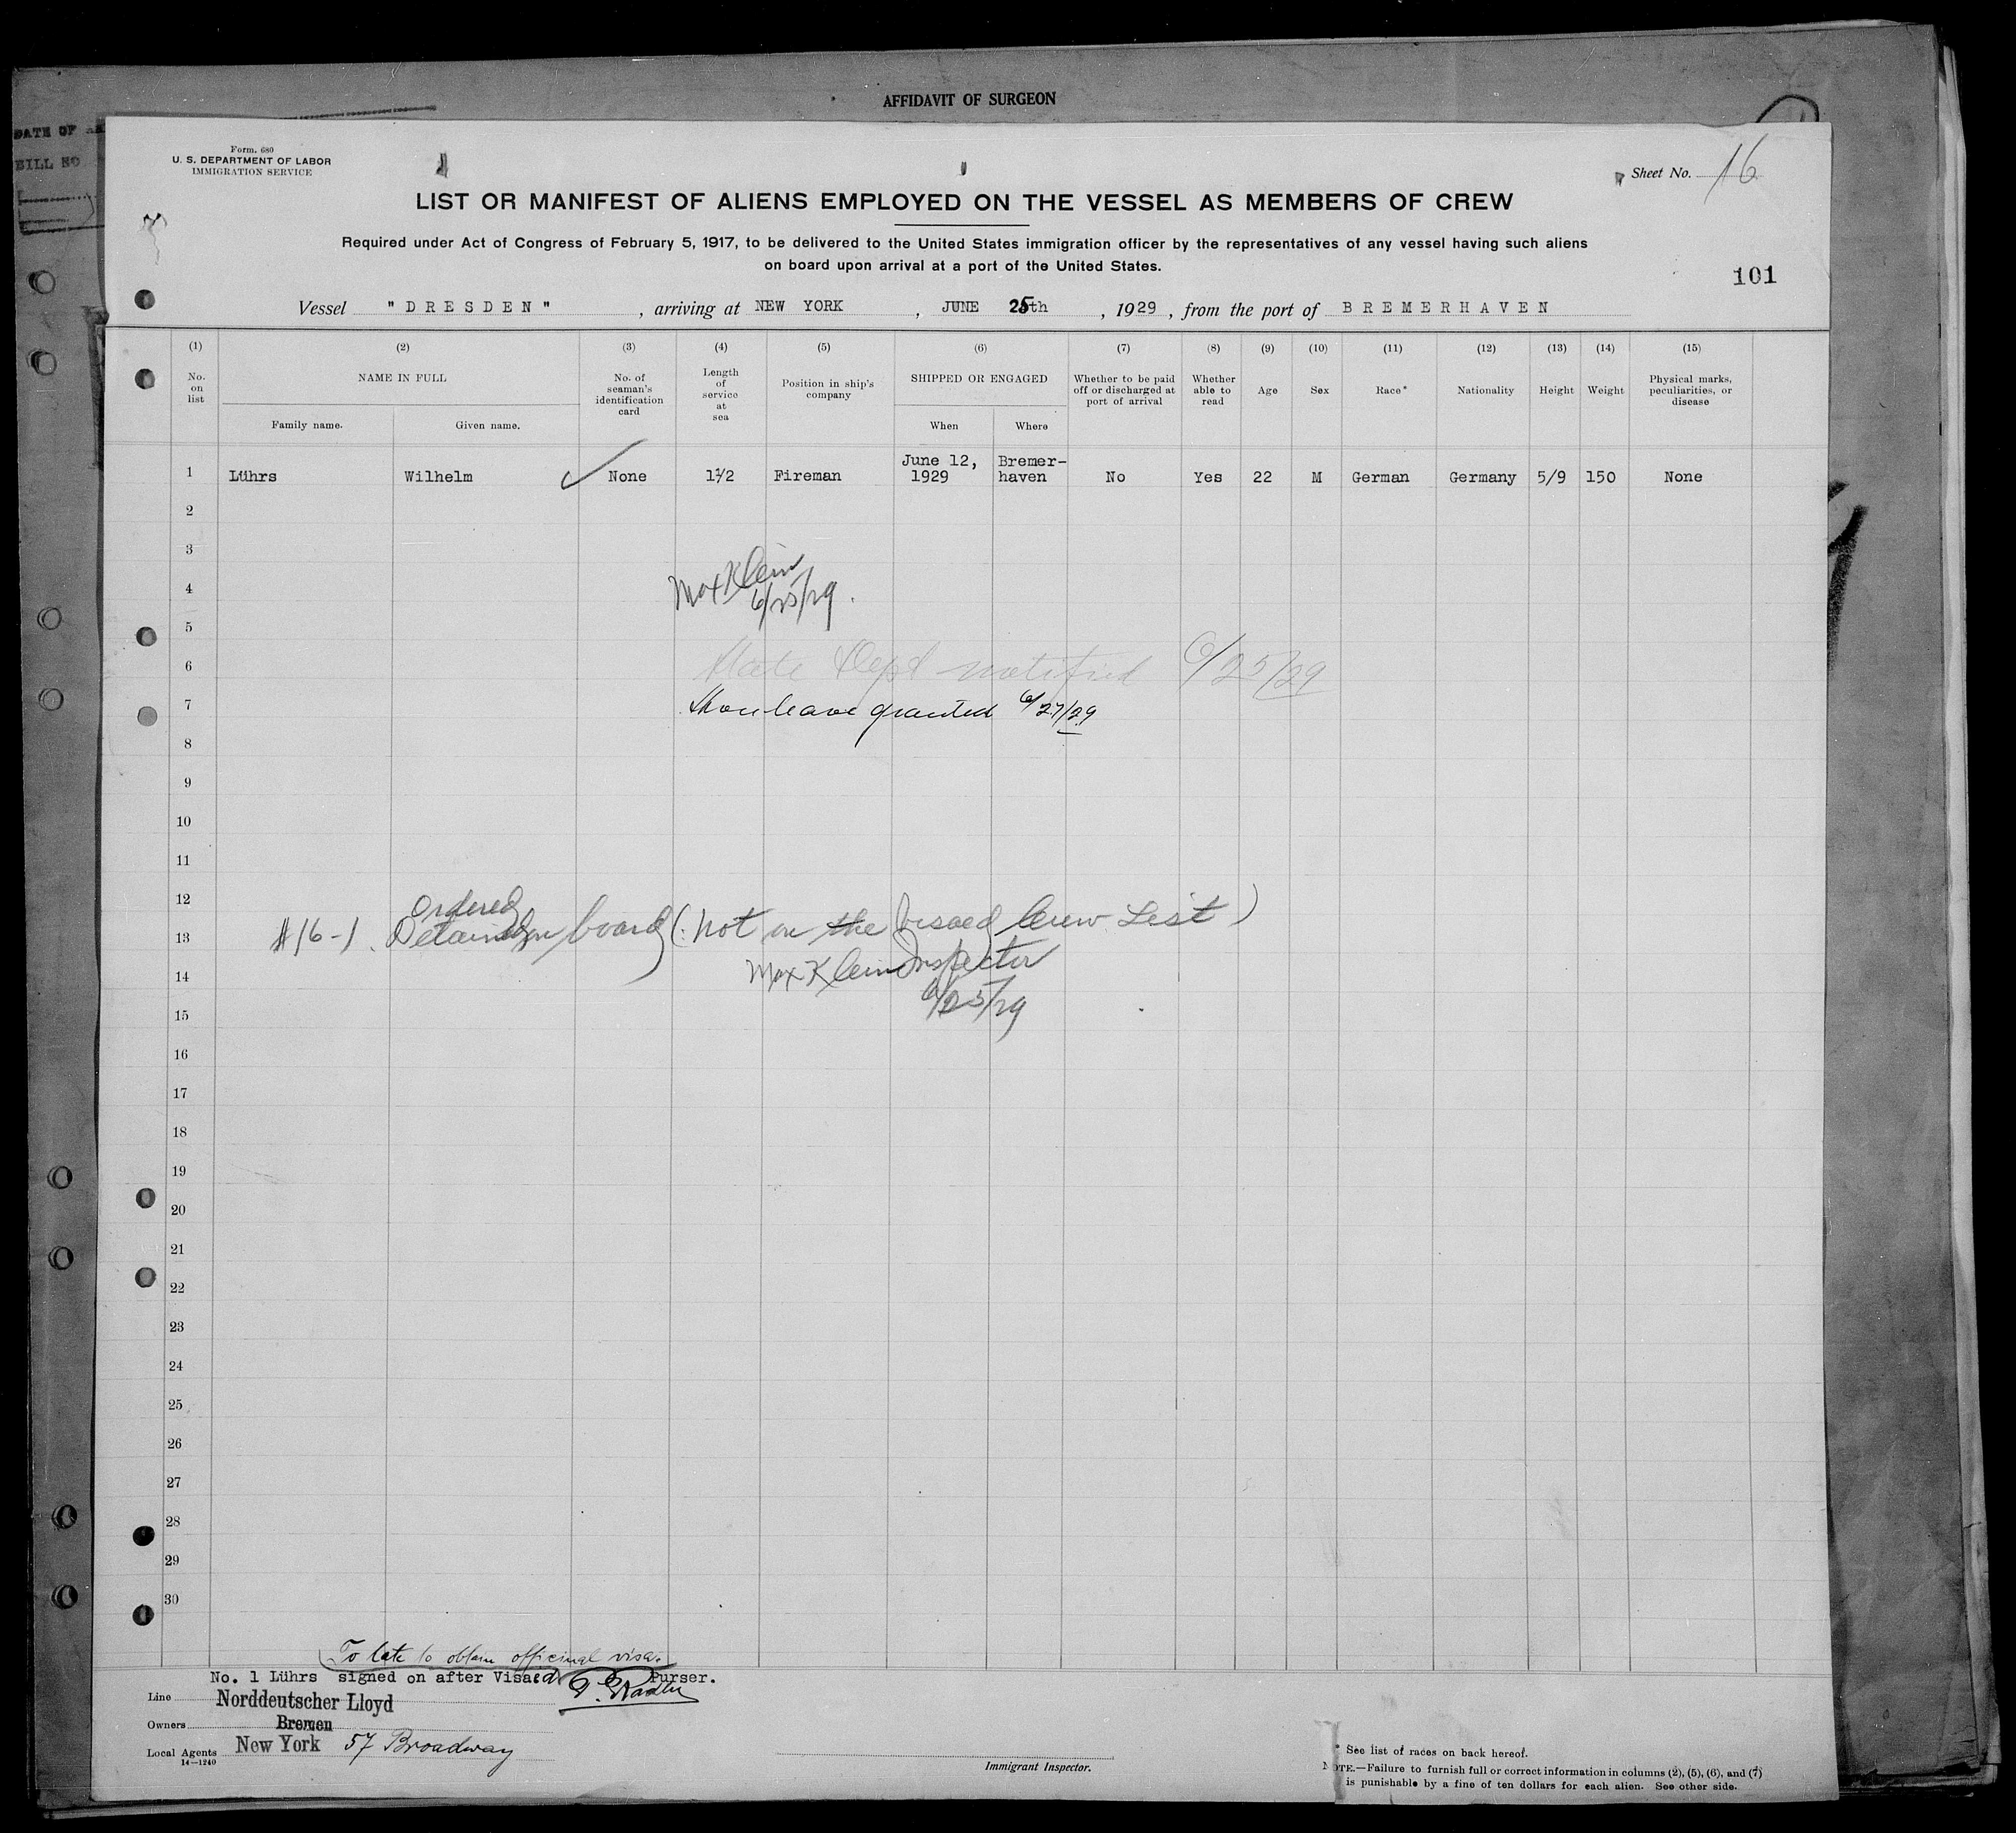 AFFIDAVIT OF SURGEON
DATE OF
BILL NO
Form. 680
U. S. DEPARTMENT OF LABOR
IMMIGRATION SERVICE
Sheet No. 16
LIST OR MANIFEST OF ALIENS EMPLOYED ON THE VESSEL AS MEMBERS OF CREW
Required under Act of Congress of February 5, 1917, to be delivered to the United States immigration officer by the representatives of any vessel having such aliens
on board upon arrival at a port of the United States.
101
Vessel "DRESDEN", arriving at NEW YORK, JUNE 25th, 1929, from the port of BREMERHAVEN
(1) (2) (3) (4) (5) (6) (7) (8) (9) (10) (11) (12) (13) (14) (15)
No. on list NAME IN FULL Family name. Given name. No. of seaman's identification card Length of service at sea Position in ship's company SHIPPED OR ENGAGED When Where Whether to be paid off or discharged at port of arrival Whether able to read Age Sex Race* Nationality Height Weight Physical marks, peculiarities, or disease
1 Lührs Wilhelm None 1½ Fireman June 12, 1929 Bremer-haven No Yes 22 M German Germany 5/9 150 None
2
3
Max Klein
4
6/25/29.
5
6 State Dept notified 6/25/29
7 Shore leave granted 6/27/29
8
9
10
11
12
Ordered
13 #16-1. Detained on board (: not on the visaed Crew List)
14 Max Klein Inspector
15 6/25/29
16
17
18
19
20
21
22
23
24
25
26
27
28
29
30
To late to obtain official visa.
No. 1 Lührs signed on after Visa:ed Purser.
Line Norddeutscher Lloyd
Owners Bremen
Local Agents New York 57 Broadway
14—1240
Immigrant Inspector.
* See list of races on back hereof.
NOTE.—Failure to furnish full or correct information in columns (2), (5), (6), and (7)
is punishable by a fine of ten dollars for each alien. See other side.